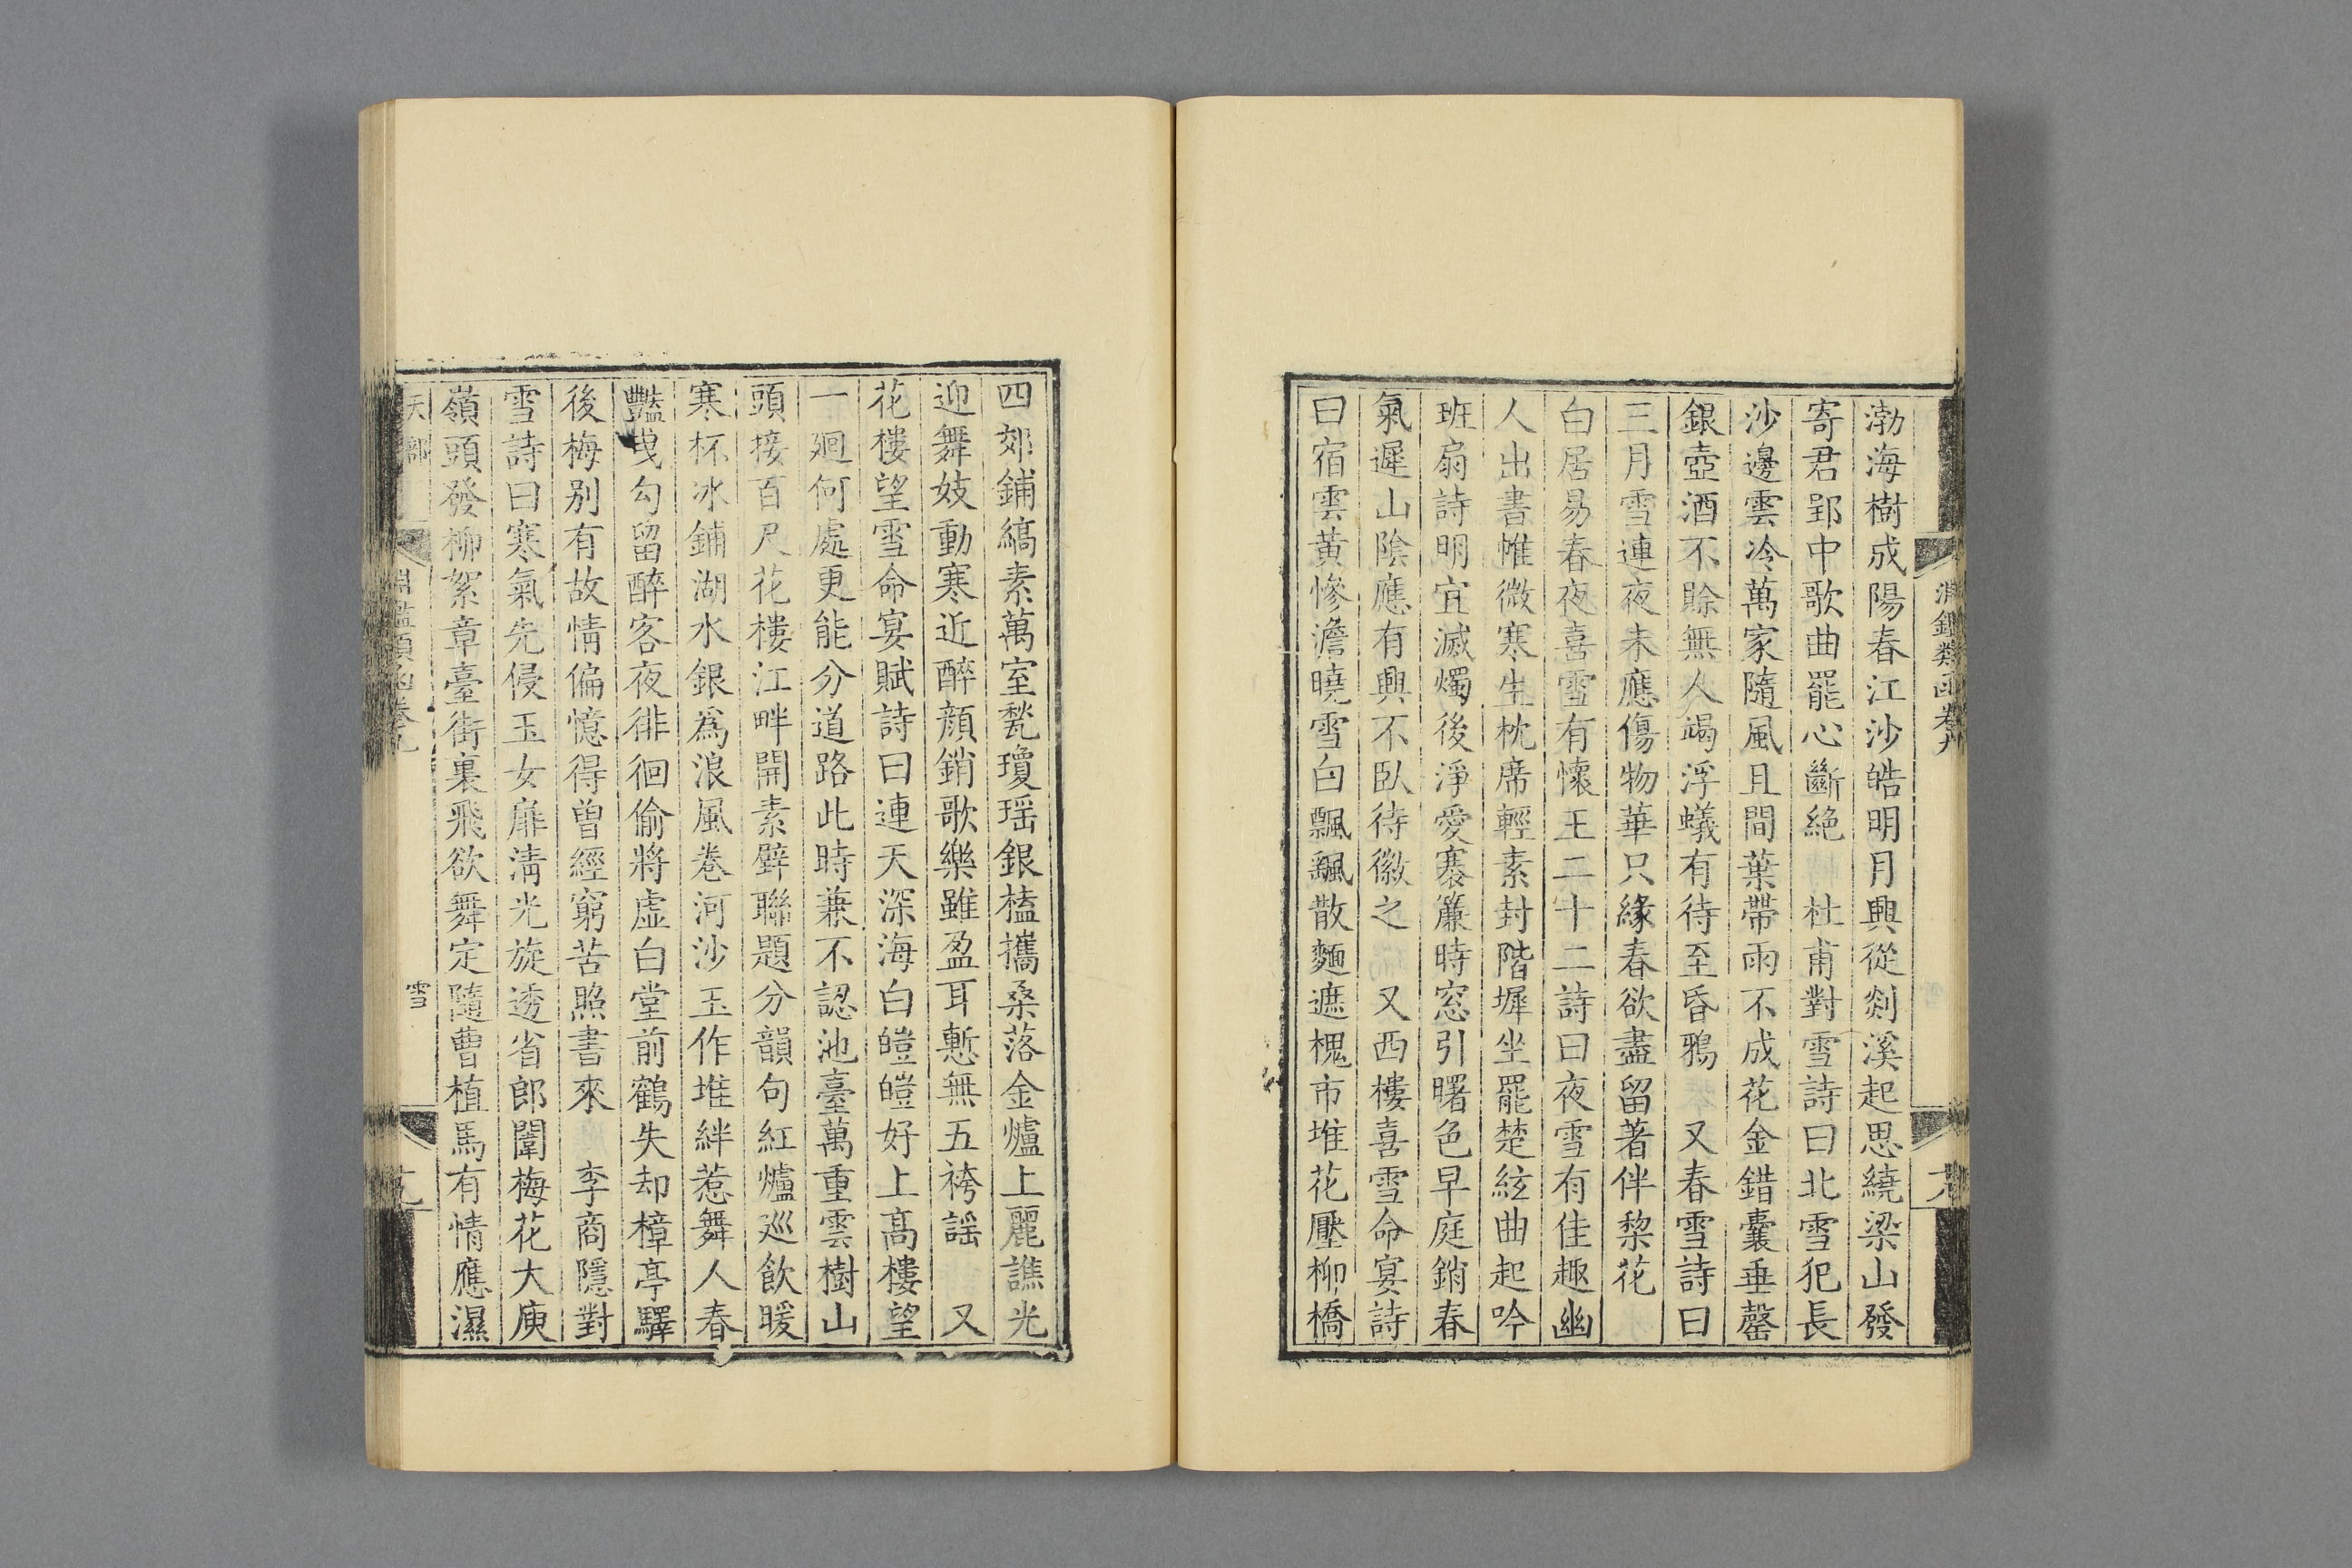 渤海樹成陽春江沙皓明月興從剡溪起思繞梁山發
寄君郢中歌曲罷心斷絶　杜甫對雪詩曰北雪犯長
沙邊雲冷萬家隨風且間葉帶雨不成花金錯囊垂罄
銀壺酒不賒無人竭浮蟻有待至昏鴉　又春雪詩曰
三月雪連夜未應傷物華只緣春欲盡留著伴棃花
白居易春夜喜雪有懷王二十二詩曰夜雪有佳趣幽
人出書帷微寒生枕席輕素封階墀坐罷楚絃曲起吟
班扇詩明宜滅燭後淨愛褰簾時窓引曙色早庭銷春
氣遲山陰應有興不臥待徽之　又西樓喜雪命宴詩
曰宿雲黃慘澹曉雪白飄颻散麵遮槐市堆花壓柳橋
四郊鋪縞素萬室甃瓊瑶銀榼攜桑落金爐上麗譙光
迎舞妓動寒近醉顔銷歌樂雖盈耳慙無五袴謡　又
花樓望雪命宴賦詩曰連天深海白皚皚好上高樓望
一廻何處更能分道路此時兼不認池臺萬重雲樹山
頭接百尺花樓江畔開素壁聯題分韻句紅爐巡飲暖
寒杯冰鋪湖水銀爲浪風卷河沙玉作堆絆惹舞人春
豔曳勾留醉客夜徘徊偷將虚白堂前鶴失却樟亭驛
後梅别有故情偏憶得曾經窮苦照書來　李商隱對
雪詩曰寒氣先侵玉女扉清光旋透省郎闈梅花大庾
嶺頭發柳絮章臺街裏飛欲舞定隨曹植馬有情應濕
天部
淵鑑類函卷九
雪